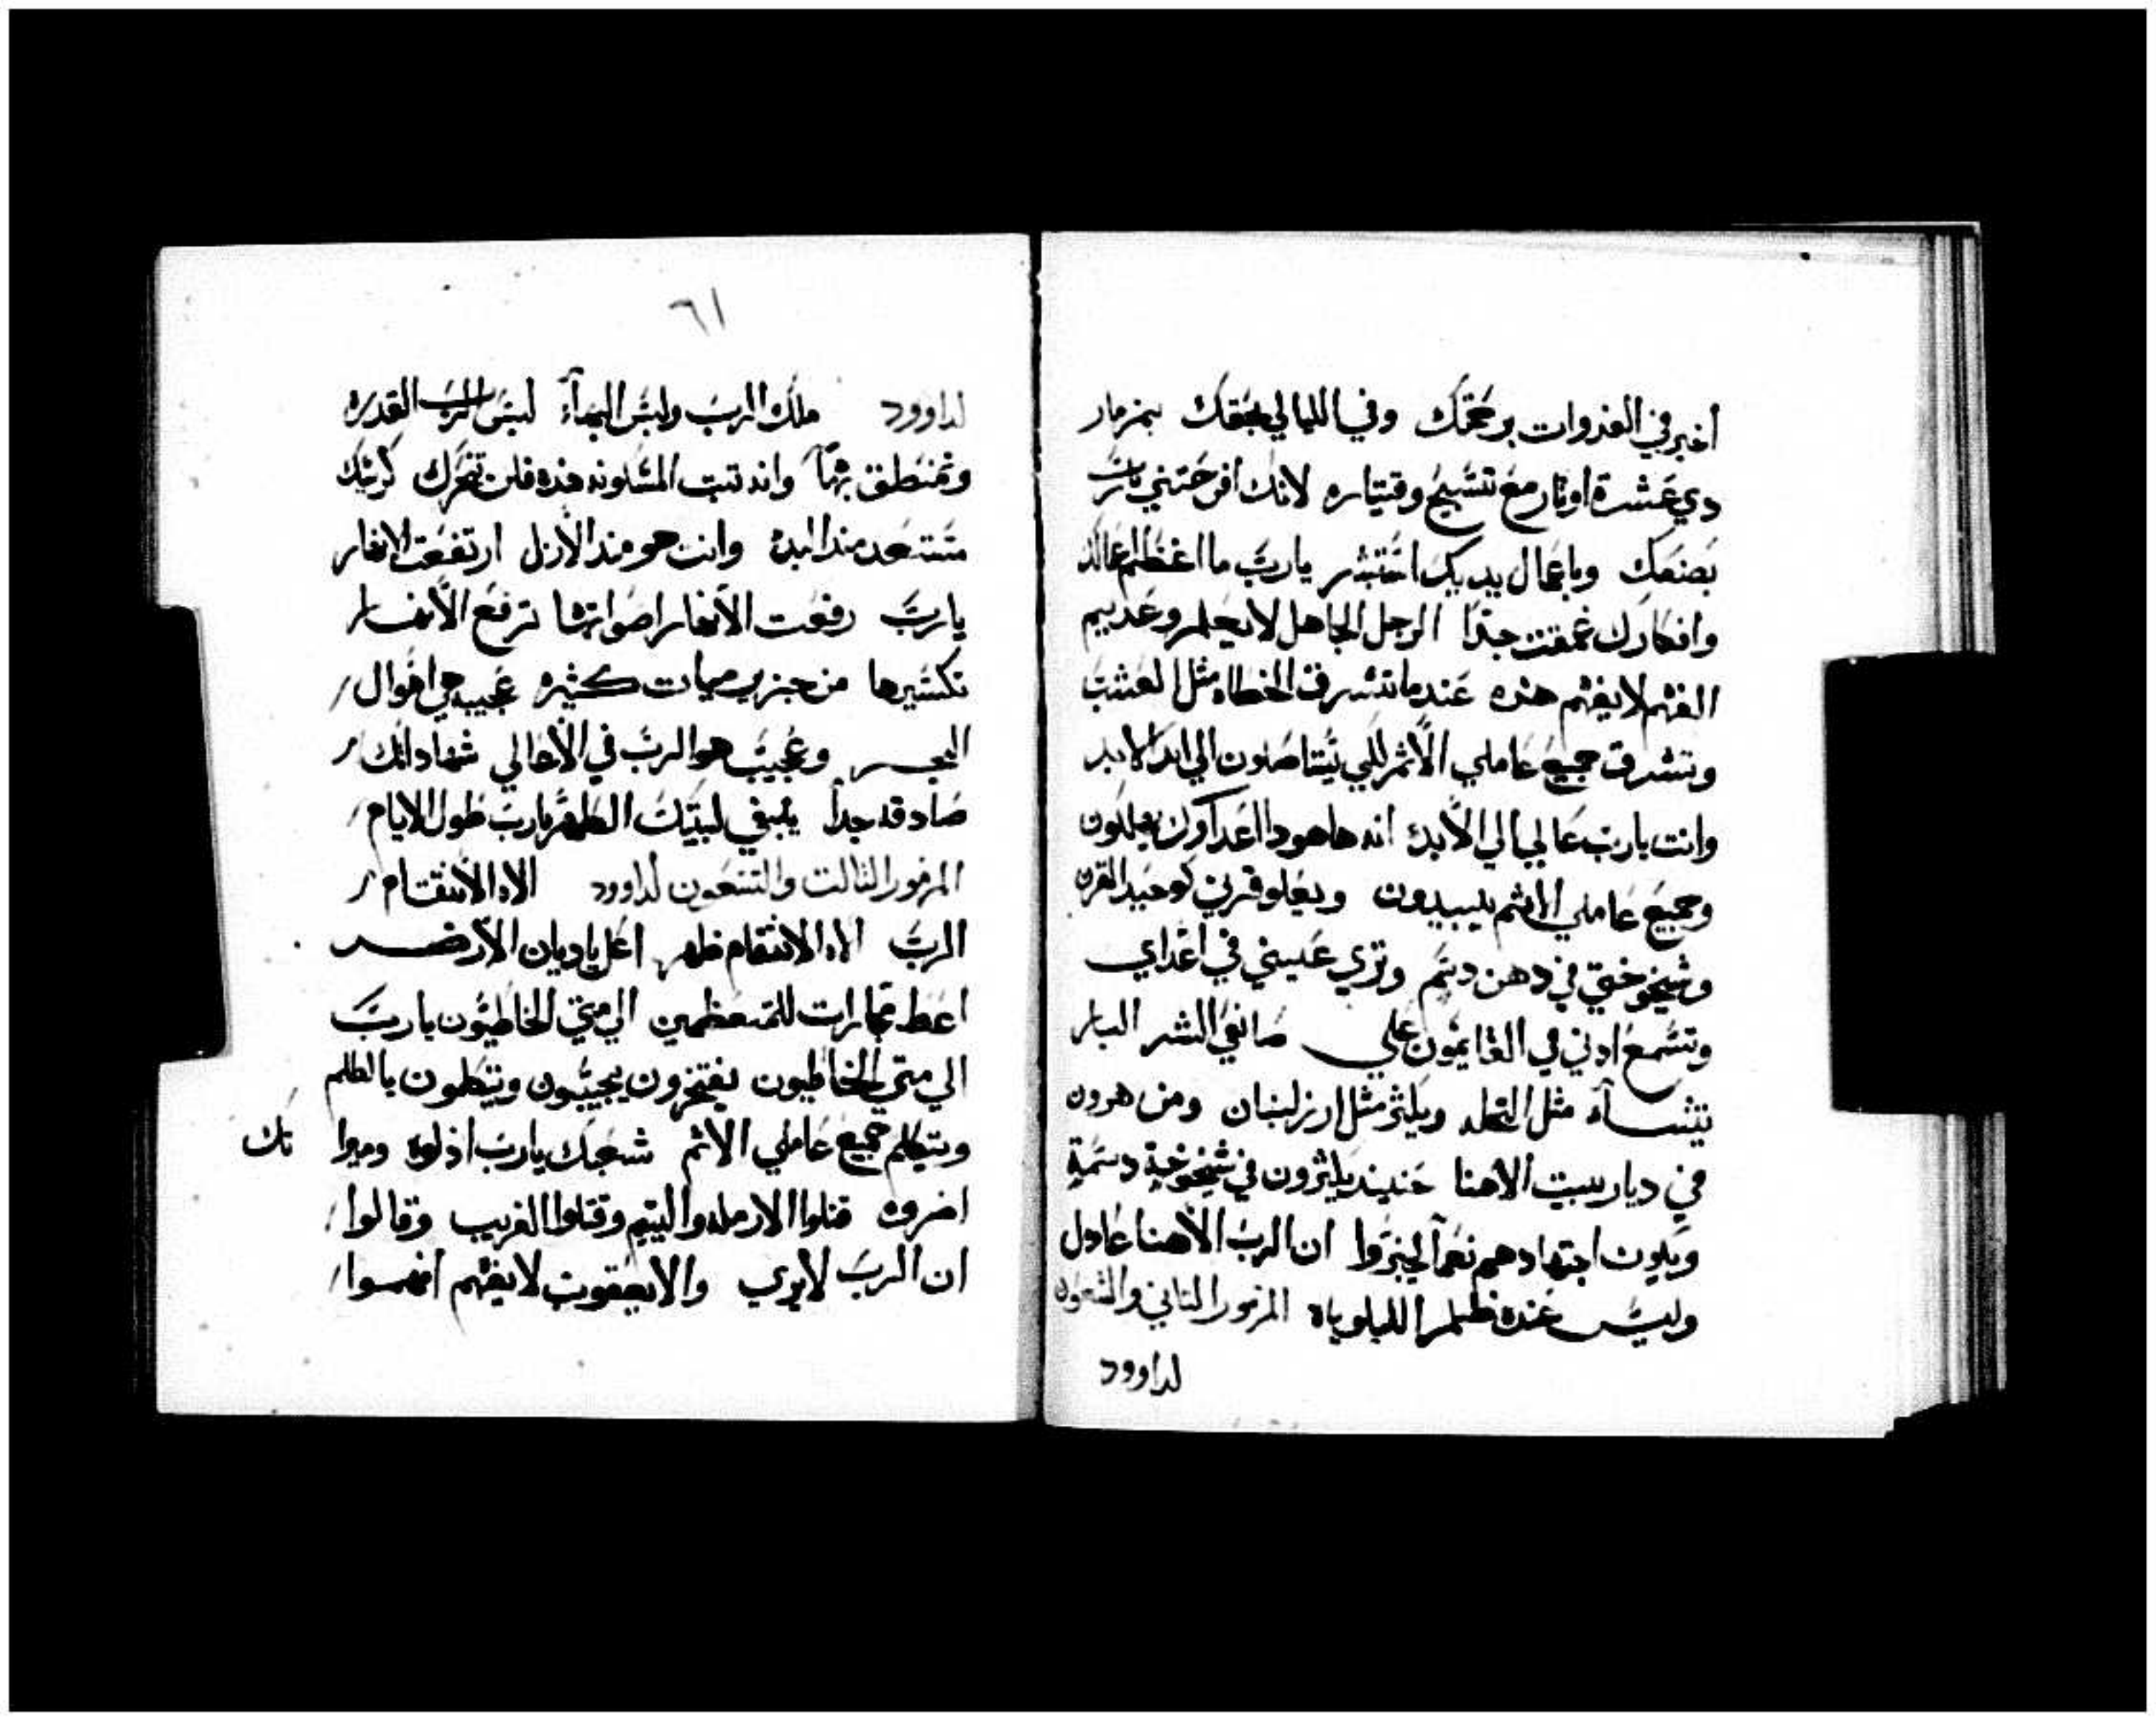 أخبر في الغدوات برحمتك وفي الليالي بحقك بمزمار
دي عشرة اوتار مع تسبيح وقيتاره لانك افرحتني يارب
بصنعك وباعمال يديك استبشر يارب ما اعظم اعمالك
وافكارك عمقت جدًا الرجل الجاهل لا يعلم وعديم
الفهم لا يفهم هذه عندما تشرق الخطاه مثل العشب
وتشرق جميع عاملي الأثم للي يستاصلون الي ابد الابد
وانت يارب عالي الي الأبد انه هاهودا اعداوك يهلكون
وجميع عاملي الاثم يبيدون ويعلو قرني كوحيد القرن
وشيخوختي في دهن دسم وتري عيني في اعداي
وتسمع ادني في القايمون علي صانعي الشر البار
ينشاء مثل النخله ويكثر مثل ارز لبنان ومن هرون
في ديار بيت ألاهنا حنيند يكثرون في شيخوخة دسمة
ويكون اجتهادهم نعمًا ليخبروا ان الرب ألاهنا عادل
وليس عنده ظلم الليلوياه المزمور التاني والتسعون
لداوود
٦١
لداوود ملك الرب ولبس البهاء لبس الرب القدره
وتمنطق بها وانه تبت المسكونه هذه فلن تتحرك كرسيك
مستعد مند البدء وانت هو مند الأزل ارتفعت الانهار
يارب رفعت الأنهار اصواتها ترفع الأنهار
تكسيرها من خرير مياه كثيره عجيبه هي اهوال
البحر وعجيب هو الرب في الأعالي شهاداتك
صادقه جدا ينبغي لبيتك الطهر يارب طول الايام
المزمور التالت والتسعون لداوود الاه الأنتقام
الرب الاه الانتقام ظهر اعل يا ديان الأرض
اعط مجازات للمتعظمين الي متي الخاطيون يارب
الي متي الخاطيون يفتخرون يجيبون ويتكلمون بالظلم
ويتكلم جميع عاملي الاثم شعبك يارب اذلوه وميرا تك
اضروه قتلوا الارمله واليتيم وقتلوا الغريب وقالوا
ان الرب لا يري والا يعقوب لا يفهم افهموا